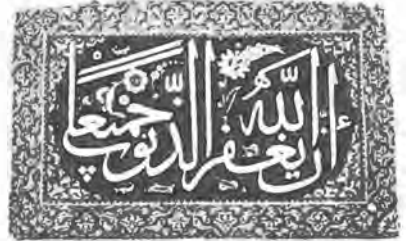 أن الله يغفر الذنوب جميعا